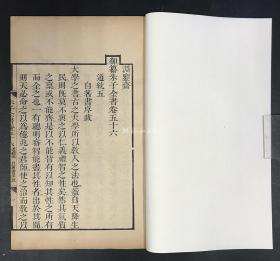 淵鑒齋
御纂朱子全書卷五十六
道統五
自著書序跋
大學之書古之大學所以教人之法也蓋自天降生
民則既莫不與之以仁義禮智之性矣然其氣質
之稟或不能齊是以不能皆有以知其性之所有
而全之也一有聰明睿智能盡其性者出於其間
則天必命之以為億兆之君師使之治而教之以